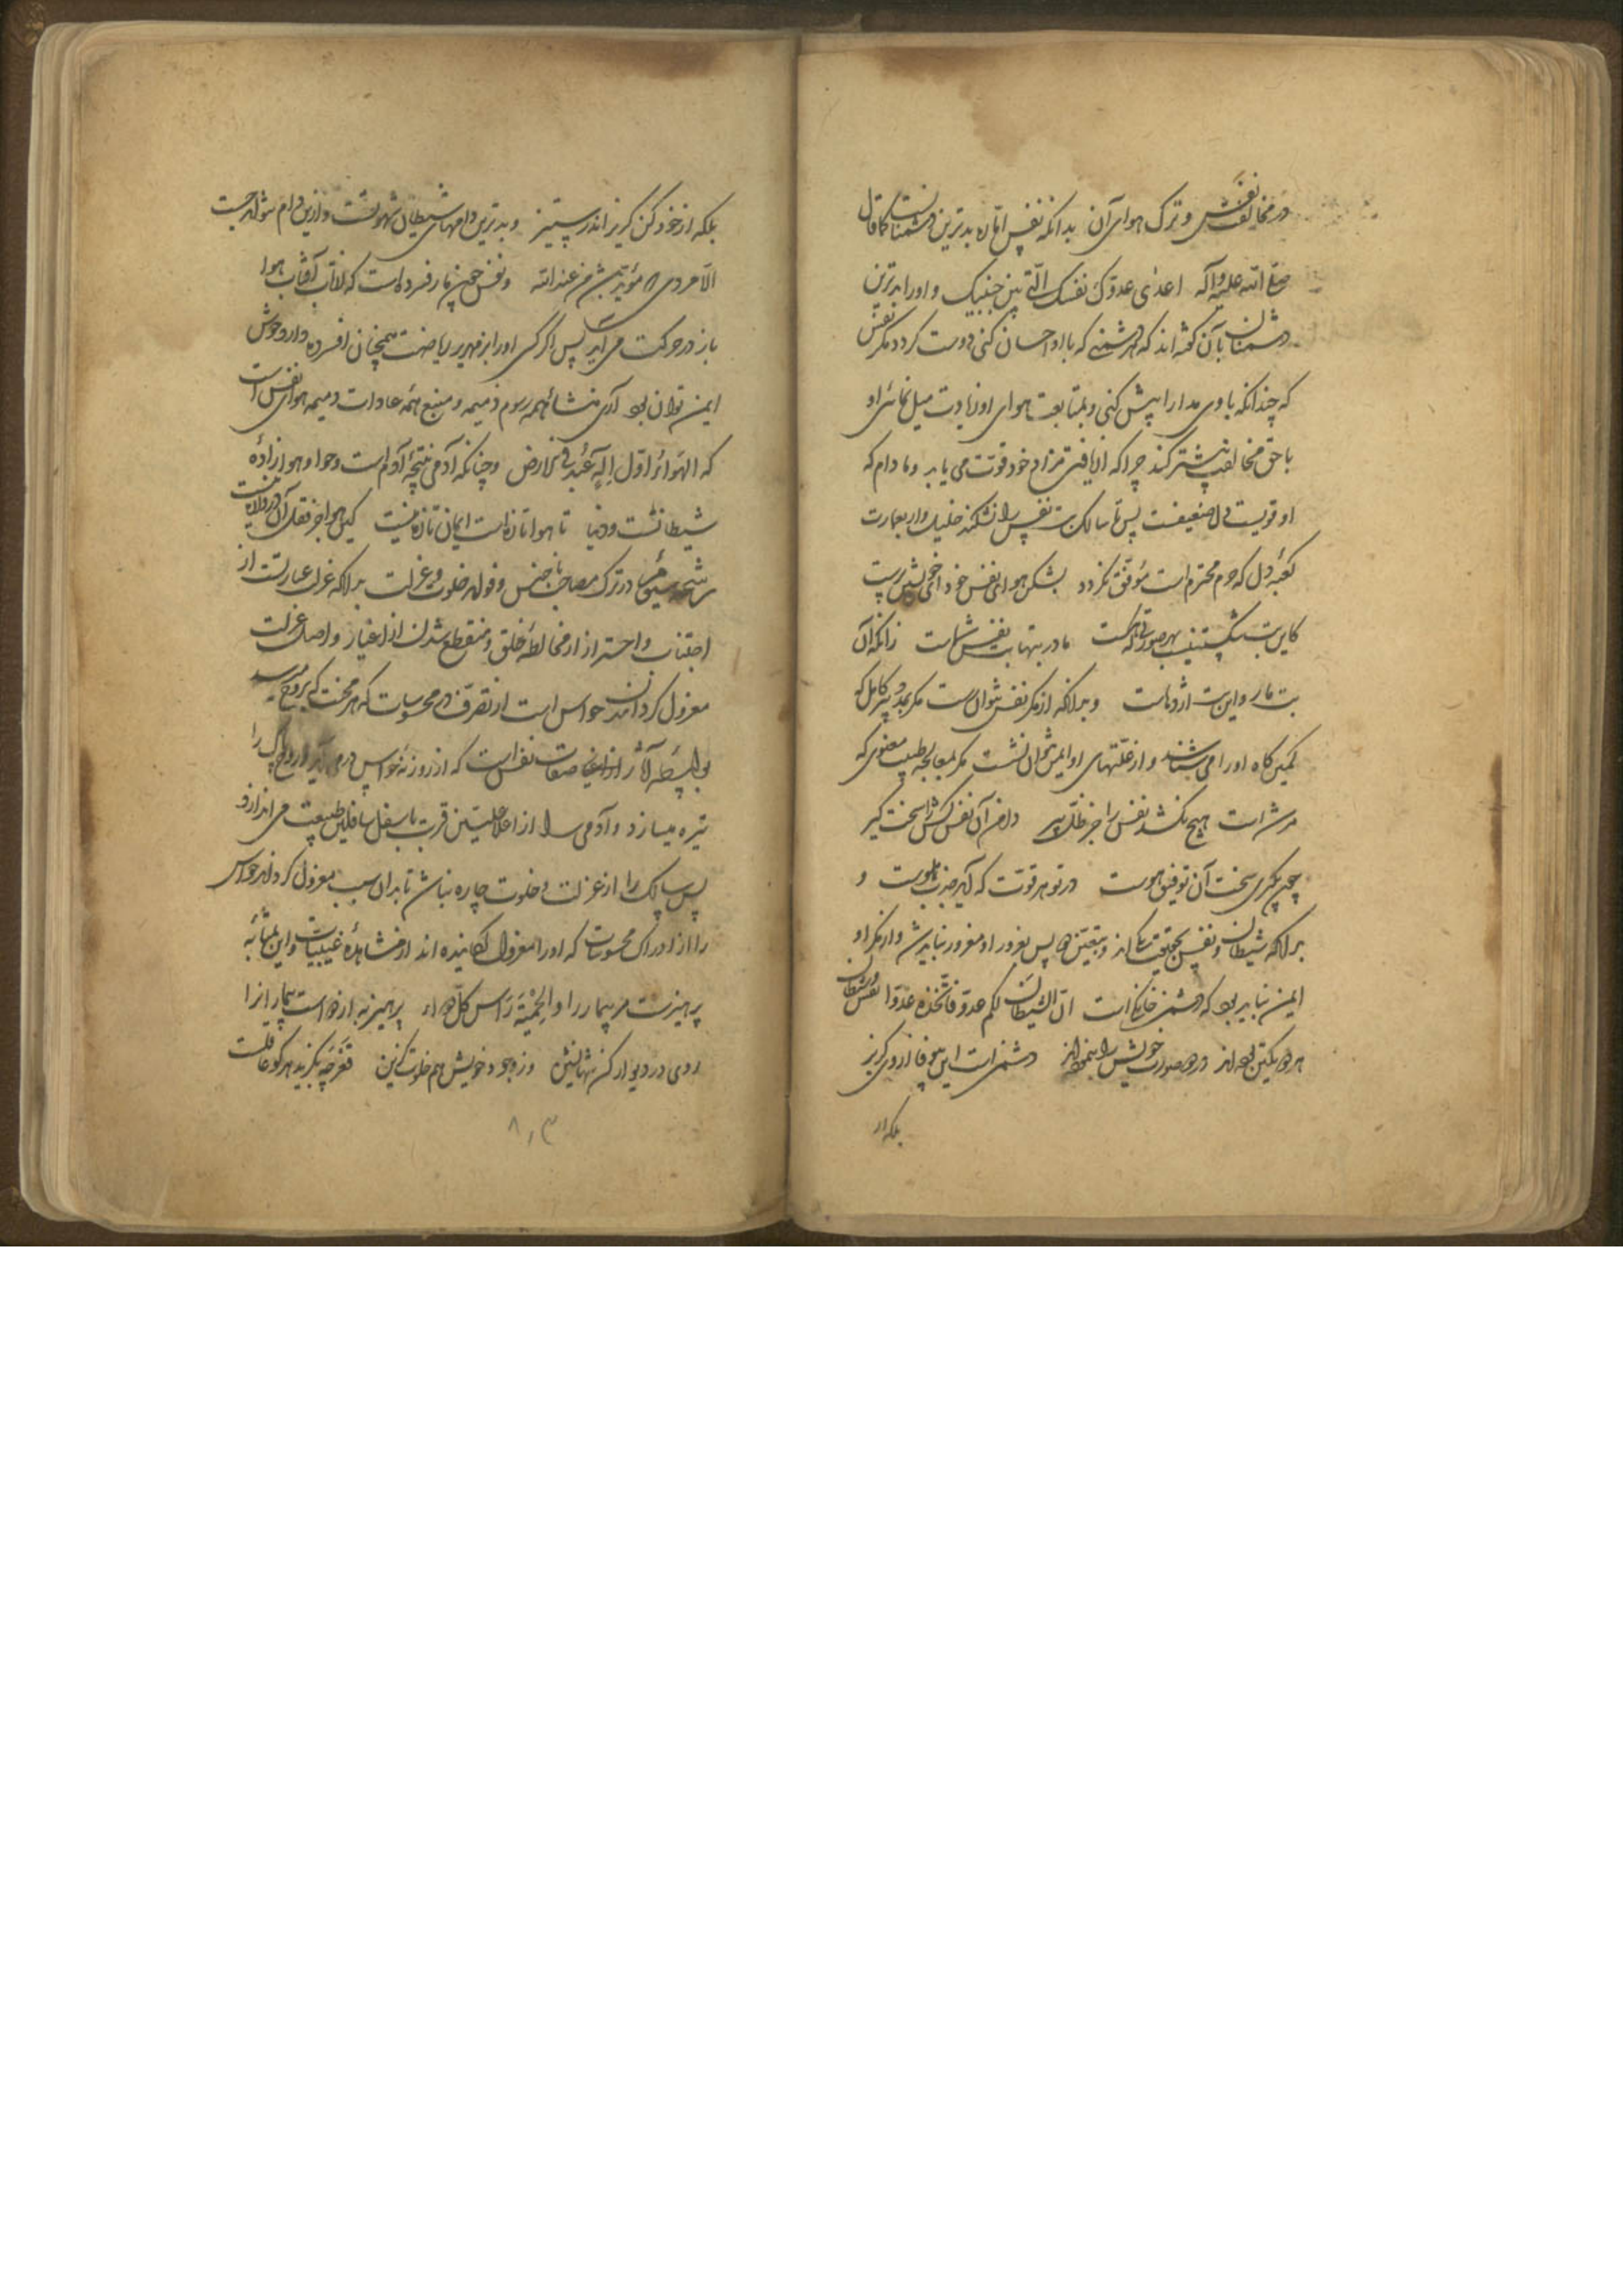 در مخالفت نفس و ترک هوای آن بدانکه نفس اماره بدترین دشمنانست کما قال
صلی الله علیه وآله اعدی عدوک نفسک التی بین جنبیک و او را بدترین
دشمنان بآن گفته‌اند که هر دشمنے که با او احسان کنی دوست کردد مکر نفس
که چندانکه با وی مدارا پیش کنی و بمتابعت هوای او زیادت میل نمائی او
با حق مخالفت بیشتر کند چرا که از یافتن مراد خود قوت می یابد و مادام که
او قویست دل ضعیفست پس تا سالک بت نفس را نشکند خلیل وار بعمارت
کعبهٔ دل که حرم محترم است موفق نکردد بشکن هوای نفس خود ای پرست
کاین بت شکستنیست بهر صورتی که هست مادر بتها بت نفس شماست زانکه آن
بت مار و این بت اژدهاست و بدانکه از مکر نفس نتوان رست مکر بمدد پیر کامل که
کمین کاه او را می شناسد و از علتهای او ایمن نتوان نشست مکر بمعالجه طبیب معنوی که
مرشد است هیچ نکشد نفس را جز ظل پیر دامن آن نفس کش را سخت کیر
چون بکیری سخت آن توفیق هوست در تو هر قوت که آید جذب اوست و
بدانکه شیطان و نفس بحقیقت یک اند پس بغرور او مغرور نباید شد و از مکر او
ایمن نباید بود که دشمن خانکی است ان الشیطان لکم عدو فاتخذوه عدوا نفس و شیطان
هر دو یکتن بوده اند در دو صورت خویش را بنموده اند دشمنی است این بیوفا از وی کریز
بلکه از
بلکه از خود کن کریز اندر ستیز و بدترین دامهای شیطان شهوتست و ازین دام نتواند جست
الا مردی که مؤید باشد من عند الله و نفس چون مار فسرده است که از تاب آفتاب هوا
باز در حرکت می آید پس اگر کسی او را بزمهریر ریاضت همچنان افسرده دارد خوش
ایمن توان بود آری منشاء همه رسوم ذمیمه و منبع همه عادات دمیمه هوای نفس است
که الهواء اول اله عبد فی الارض و چنانکه آدمی نتیجهٔ آدم است و حوا و هوا زادهٔ
شیطانست و دنیا تا هوا تازه است ایمان تازه نیست کین هوا جز قفل آن دروازه نیست
رشحه در ترک مصاحب ناجنس و فواید خلوت و عزلت بدانکه عزلت عبارتست از
اجتناب و احتراز از مخالطهٔ خلق و منقطع شدن از اغیار و اصل عزلت
معزول کردانیدن حواس است از تصرف در محسوسات که هر محنت که بروح میرسد
بواسطه آثار صفات نفس است که از روزنهٔ حواس در می آید و روح پاک را
تیره میسازد و آدمی را از اعلا علیین قرب باسفل سافلین طبیعت می اندازد
پس سالک را از عزلت و خلوت چاره نباشد تا بدان سبب معزول کرداند حواس
را از ادراک محسوسات که او را معزول کردانیده اند از مشاهدهٔ غیبیات و این بمثابه
پرهیزست مر بیمار را و الحمیة رأس کل دواء پرهیز به از دواست بیمار انرا
روی در دیوار کن تنها نشین وز وجود خویش هم خلوت کزین قعر چه بکزید هر کو عاقلست
۸۰۳